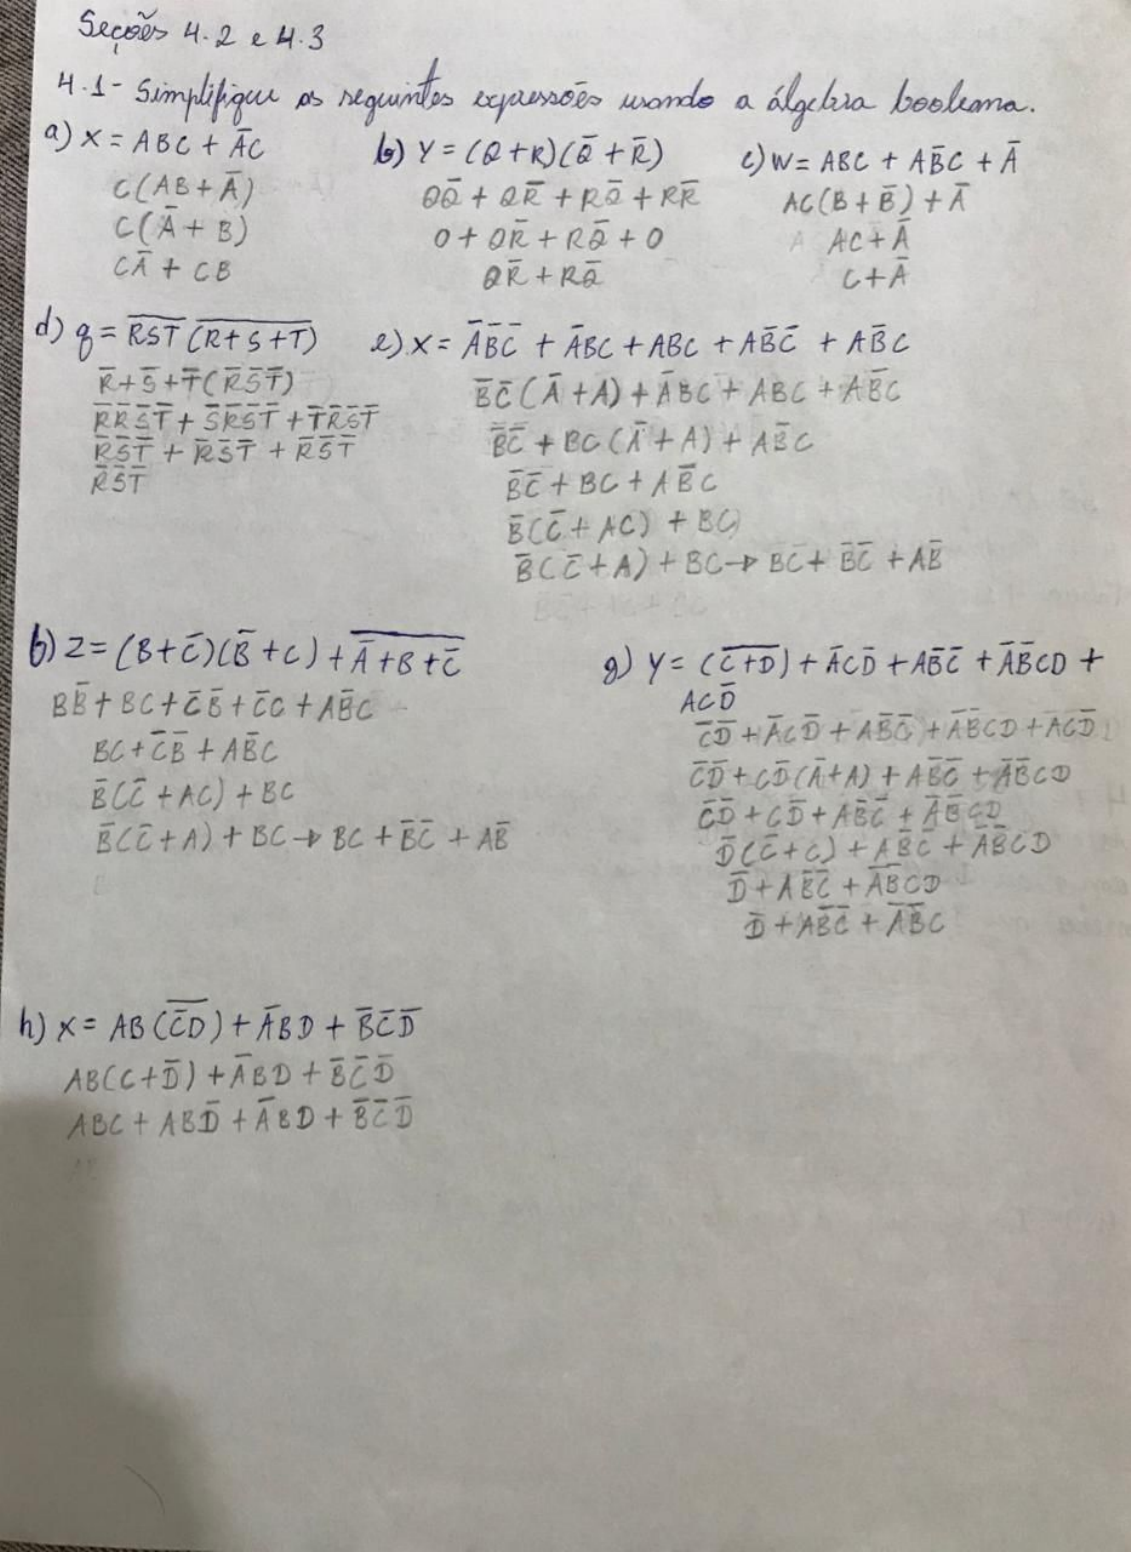 Seções 4.2 e 4.3
4.1- Simplifique as seguintes expressões usando a álgebra booleana.
a) X = ABC + A̅C
C(AB + A̅)
C(A̅ + B)
CA̅ + CB
b) Y = (Q+R)(Q̅ + R̅)
QQ̅ + QR̅ + RQ̅ + RR̅
0 + QR̅ + RQ̅ + 0
QR̅ + RQ̅
c) W = ABC + AB̅C + A̅
AC(B + B̅) + A̅
AC + A̅
C + A̅
d) q = R̅S̅T̅ (R̅+̅S̅+̅T̅)
R̅ + S̅ + T̅(R̅S̅T̅)
R̅R̅S̅T̅ + S̅R̅S̅T̅ + T̅R̅S̅T̅
R̅S̅T̅ + R̅S̅T̅ + R̅S̅T̅
R̅S̅T̅
e) X = A̅B̅C̅ + A̅BC + ABC + AB̅C̅ + AB̅C
B̅C̅(A̅ + A) + A̅BC + ABC + AB̅C
B̅C̅ + BC(A̅ + A) + AB̅C
B̅C̅ + BC + AB̅C
B̅(C̅ + AC) + BC
B̅(C̅ + A) + BC → BC + B̅C̅ + AB̅
f) Z = (B+C̅)(B̅ + C) + A̅̅ ̅+̅B̅ ̅+̅C̅̅
BB̅ + BC + C̅B̅ + C̅C + AB̅C
BC + C̅B̅ + AB̅C
B̅(C̅ + AC) + BC
B̅(C̅ + A) + BC → BC + B̅C̅ + AB̅
g) Y = (C̅+̅D̅) + A̅CD̅ + AB̅C̅ + A̅B̅CD +
ACD̅
C̅D̅ + A̅CD̅ + AB̅C̅ + A̅B̅CD + ACD̅
C̅D̅ + CD̅(A̅+A) + AB̅C̅ + A̅B̅CD
C̅D̅ + CD̅ + AB̅C̅ + A̅B̅CD
D̅(C̅ + C) + AB̅C̅ + A̅B̅CD
D̅ + AB̅C̅ + A̅B̅CD
D̅ + AB̅C̅ + A̅B̅C
h) X = AB(C̅̅D̅) + A̅BD + B̅C̅D̅
AB(C + D̅) + A̅BD + B̅C̅D̅
ABC + ABD̅ + A̅BD + B̅C̅D̅